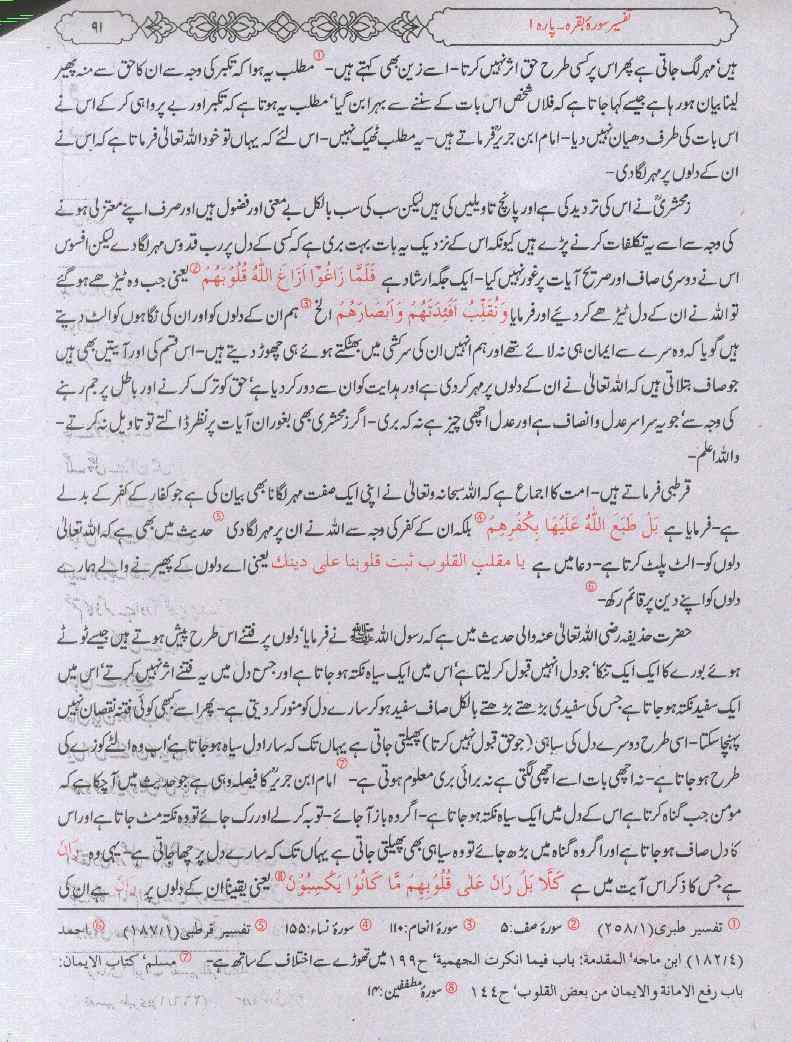 تفسیر سورۂ بقرہ۔ پارہ ۱
۹۱
ہیں‘ مہر لگ جاتی ہے پھر اس پر کسی طرح حق اثر نہیں کرتا- اسے زین بھی کہتے ہیں- ① مطلب یہ ہوا کہ تکبر کی وجہ سے ان کا حق سے منہ پھیر
لینا بیان ہو رہا ہے جیسے کہا جاتا ہے کہ فلاں شخص اس بات کے سننے سے بہرا بن گیا‘ مطلب یہ ہوتا ہے کہ تکبر اور بے پرواہی کر کے اس نے
اس بات کی طرف دھیان نہیں دیا- امام ابن جریرؒ فرماتے ہیں- یہ مطلب ٹھیک نہیں- اس لئے کہ یہاں تو خود اللہ تعالیٰ فرماتا ہے کہ اس نے
ان کے دلوں پر مہر لگا دی-
زمحشریؒ نے اس کی تردید کی ہے اور پانچ تاویلیں کی ہیں لیکن سب کی سب بالکل بے معنی اور فضول ہیں اور صرف اپنے معتزلی ہونے
کی وجہ سے اسے یہ تکلفات کرنے پڑے ہیں کیونکہ اس کے نزدیک یہ بات بہت بری ہے کہ کسی کے دل پر رب قدوس مہر لگا دے لیکن افسوس
اس نے دوسری صاف اور صریح آیات پر غور نہیں کیا- ایک جگہ ارشاد ہے فَلَمَّا زَاغُوْٓا اَزَاغَ اللّٰهُ قُلُوْبَهُمْ ② یعنی جب وہ ٹیڑھے ہو گئے
تو اللہ نے ان کے دل ٹیڑھے کر دیئے اور فرمایا وَنُقَلِّبُ اَفْـِٕدَتَهُمْ وَاَبْصَارَهُمْ الخ ③ ہم ان کے دلوں کو اور ان کی نگاہوں کو الٹ دیتے
ہیں گویا کہ وہ سرے سے ایمان ہی نہ لائے تھے اور ہم انہیں ان کی سرکشی میں بھٹکتے ہوئے ہی چھوڑ دیتے ہیں- اس قسم کی اور آیتیں بھی ہیں
جو صاف بتلاتی ہیں کہ اللہ تعالیٰ نے ان کے دلوں پر مہر کر دی ہے اور ہدایت کو ان سے دور کر دیا ہے‘ حق کو ترک کرنے اور باطل پر جم رہنے
کی وجہ سے‘ جو یہ سراسر عدل و انصاف ہے اور عدل اچھی چیز ہے نہ کہ بری- اگر زمحشری بھی بغور ان آیات پر نظر ڈالتے تو تاویل نہ کرتے-
واللہ اعلم-
قرطبی فرماتے ہیں- امت کا اجماع ہے کہ اللہ سبحانہ و تعالیٰ نے اپنی ایک صفت مہر لگانا بھی بیان کی ہے جو کفار کے کفر کے بدلے
ہے- فرمایا ہے بَلْ طَبَعَ اللّٰهُ عَلَيْهَا بِكُفْرِهِمْ ④ بلکہ ان کے کفر کی وجہ سے اللہ نے ان پر مہر لگا دی ⑤ حدیث میں بھی ہے کہ اللہ تعالیٰ
دلوں کو- الٹ پلٹ کرتا ہے- دعا میں ہے یا مقلب القلوب ثبت قلوبنا علی دینك یعنی اے دلوں کے پھیرنے والے ہمارے
دلوں کو اپنے دین پر قائم رکھ- ⑥
حضرت حذیفہ رضی اللہ تعالیٰ عنہ والی حدیث میں ہے کہ رسول اللہ ﷺ نے فرمایا‘ دلوں پر فتنے اس طرح پیش ہوتے ہیں جیسے ٹوٹے
ہوئے بورے کا ایک ایک تنکا‘ جو دل انہیں قبول کر لیتا ہے‘ اس میں ایک سیاہ نکتہ ہو جاتا ہے اور جس دل میں یہ فتنے اثر نہیں کرتے‘ اس میں
ایک سفید نکتہ ہو جاتا ہے جس کی سفیدی بڑھتے بڑھتے بالکل صاف سفید ہو کر سارے دل کو منور کر دیتی ہے- پھر اسے کبھی کوئی فتنہ نقصان نہیں
پہنچا سکتا- اسی طرح دوسرے دل کی سیاہی (جو حق قبول نہیں کرتا) پھیلتی جاتی ہے یہاں تک کہ سارا دل سیاہ ہو جاتا ہے‘ اب وہ الٹے کوزے کی
طرح ہو جاتا ہے- نہ اچھی بات اسے اچھی لگتی ہے نہ برائی بری معلوم ہوتی ہے- ⑦ امام ابن جریرؒ کا فیصلہ وہی ہے جو حدیث میں آ چکا ہے کہ
مؤمن جب گناہ کرتا ہے اس کے دل میں ایک سیاہ نکتہ ہو جاتا ہے- اگر وہ باز آ جائے- توبہ کر لے اور رک جائے تو وہ نکتہ مٹ جاتا ہے اور اس
کا دل صاف ہو جاتا ہے اور اگر وہ گناہ میں بڑھ جائے تو وہ سیاہی بھی پھیلتی جاتی ہے یہاں تک کہ سارے دل پر چھا جاتی ہے- یہی وہ رَانَ
ہے جس کا ذکر اس آیت میں ہے كَلَّا بَلْ رَانَ عَلٰى قُلُوْبِهِمْ مَّا كَانُوْا يَكْسِبُوْنَ ⑧ یعنی یقیناً ان کے دلوں پر رَانَ ہے ان کی
① تفسیر طبری (۲۵۸/۱) ② سورۂ صف: ۵ ③ سورۂ انعام: ۱۱۰ ④ سورۂ نساء: ۱۵۵ ⑤ تفسیر قرطبی (۱۸۷/۱) ⑥ احمد
(۱۸۲/٤) ابن ماجه‘ المقدمة: باب فیما انکرت الجهمیة‘ ح ۱۹۹ میں تھوڑے سے اختلاف کے ساتھ ہے- ⑦ مسلم‘ کتاب الایمان:
باب رفع الامانة والایمان من بعض القلوب‘ ح ۱٤٤ ⑧ سورۂ مطففین: ۱۴